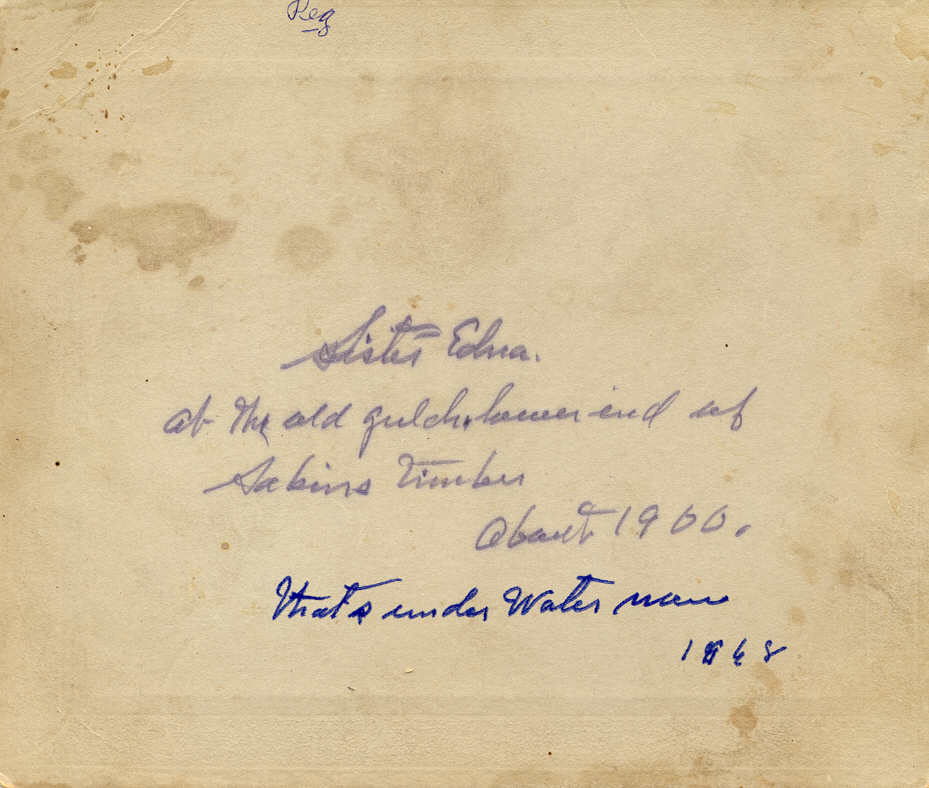 Reg
Sister Edna.
at the old gulch, lower end of
Sabins Timber
About 1900.
That's under Water now
1968